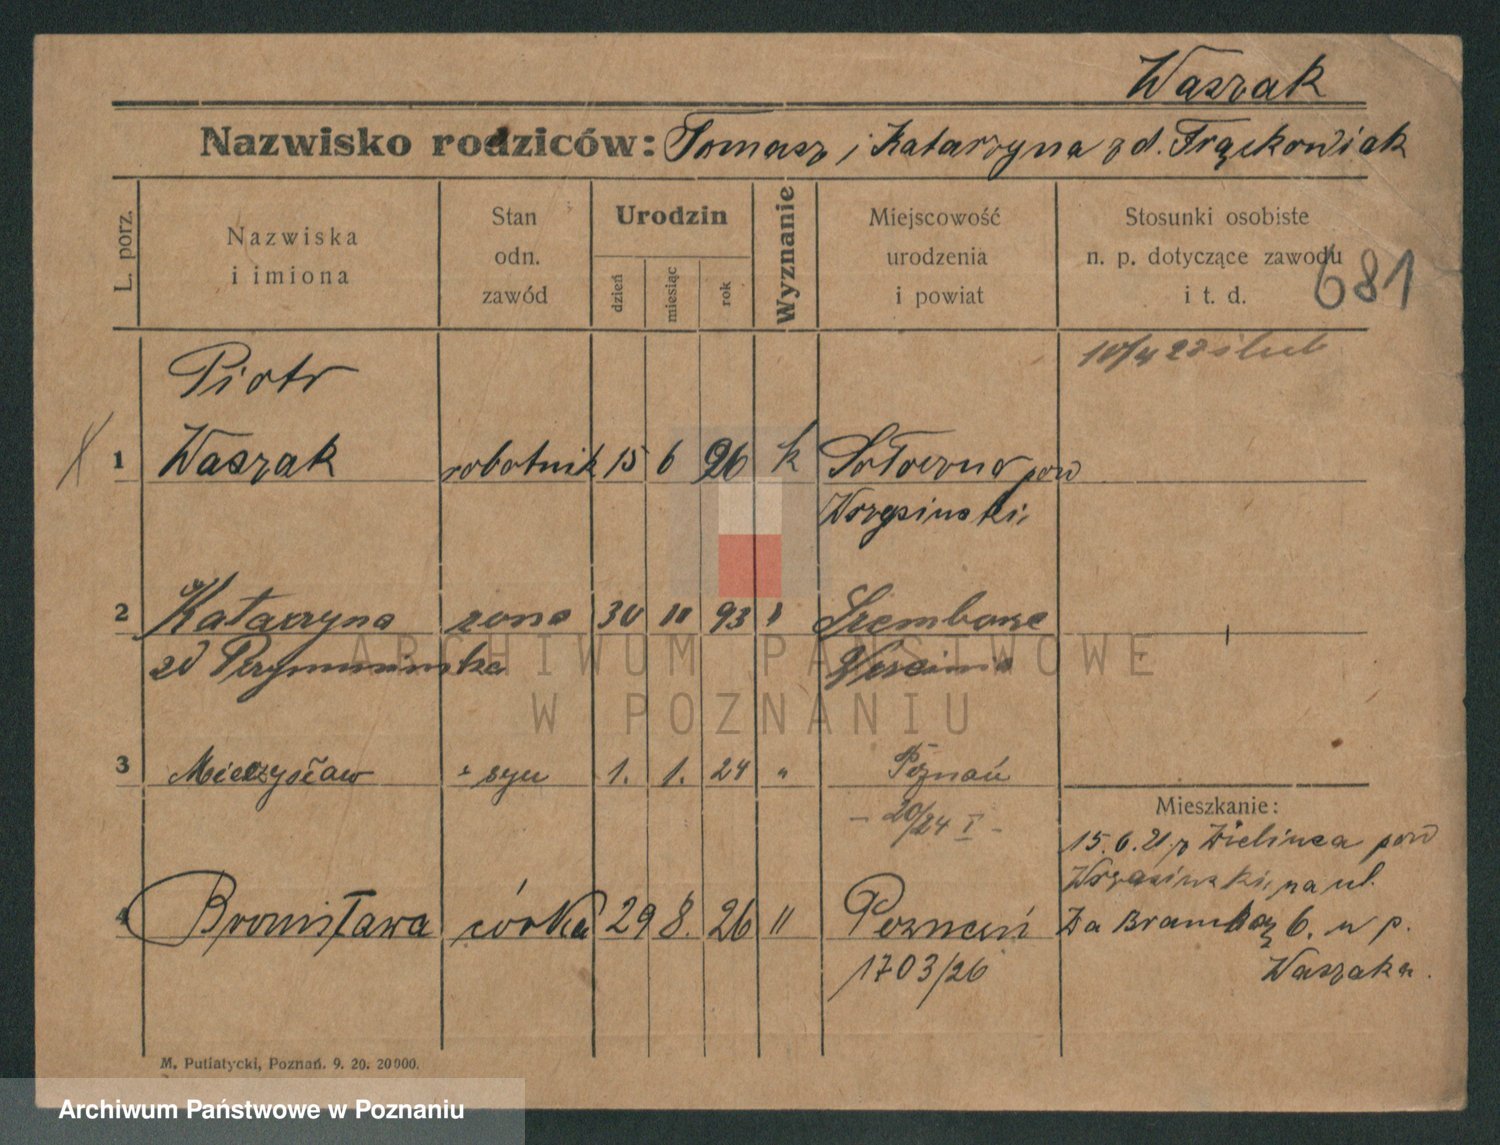 Waszak
Nazwisko rodziców: Tomasz i Katarzyna z d. Frąckowiak
L. porz.
Nazwiska
i imiona
Stan
odn.
zawód
Urodzin
dzień
miesiąc
rok
Wyznanie
Miejscowość
urodzenia
i powiat
Stosunki osobiste
n. p. dotyczące zawodu
i t. d.
681
Piotr
10/4 22 ślub
1 Waszak robotnik 15 6 96 k Sołeczno pow
Wrzesiński
2 Katarzyna żona 30 11 93
zd
3 Mieczysław syn 1. 1. 24 " Poznań
20/24 I
Mieszkanie:
15.6.21 z Zielińca pow
Wrzesiński, na ul.
4 Bronisława córka 29 8. 26 " Poznań
Za Bramką 6. u p.
1703/26
Waszaka.
M. Putiatycki, Poznań. 9. 20. 20000.
ARCHIWUM PAŃSTWOWE
W POZNANIU
Archiwum Państwowe w Poznaniu